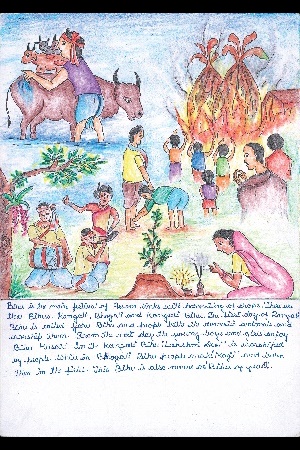 Bihu is the main festival of Assam links with harvesting of crops. There are
three Bihus. Rongali, Bhogali and Kangali Bihu. The first day of Rongali
Bihu is called Goru Bihu and people bath the domestic animals and
worship them. From the next day the young boys and girls enjoy
Bihu Husori. In the Kangali Bihu is worshiped
by people. While in Bhogali Bihu people make Meji and burn
them in the field. This Bihu is also named as festive of